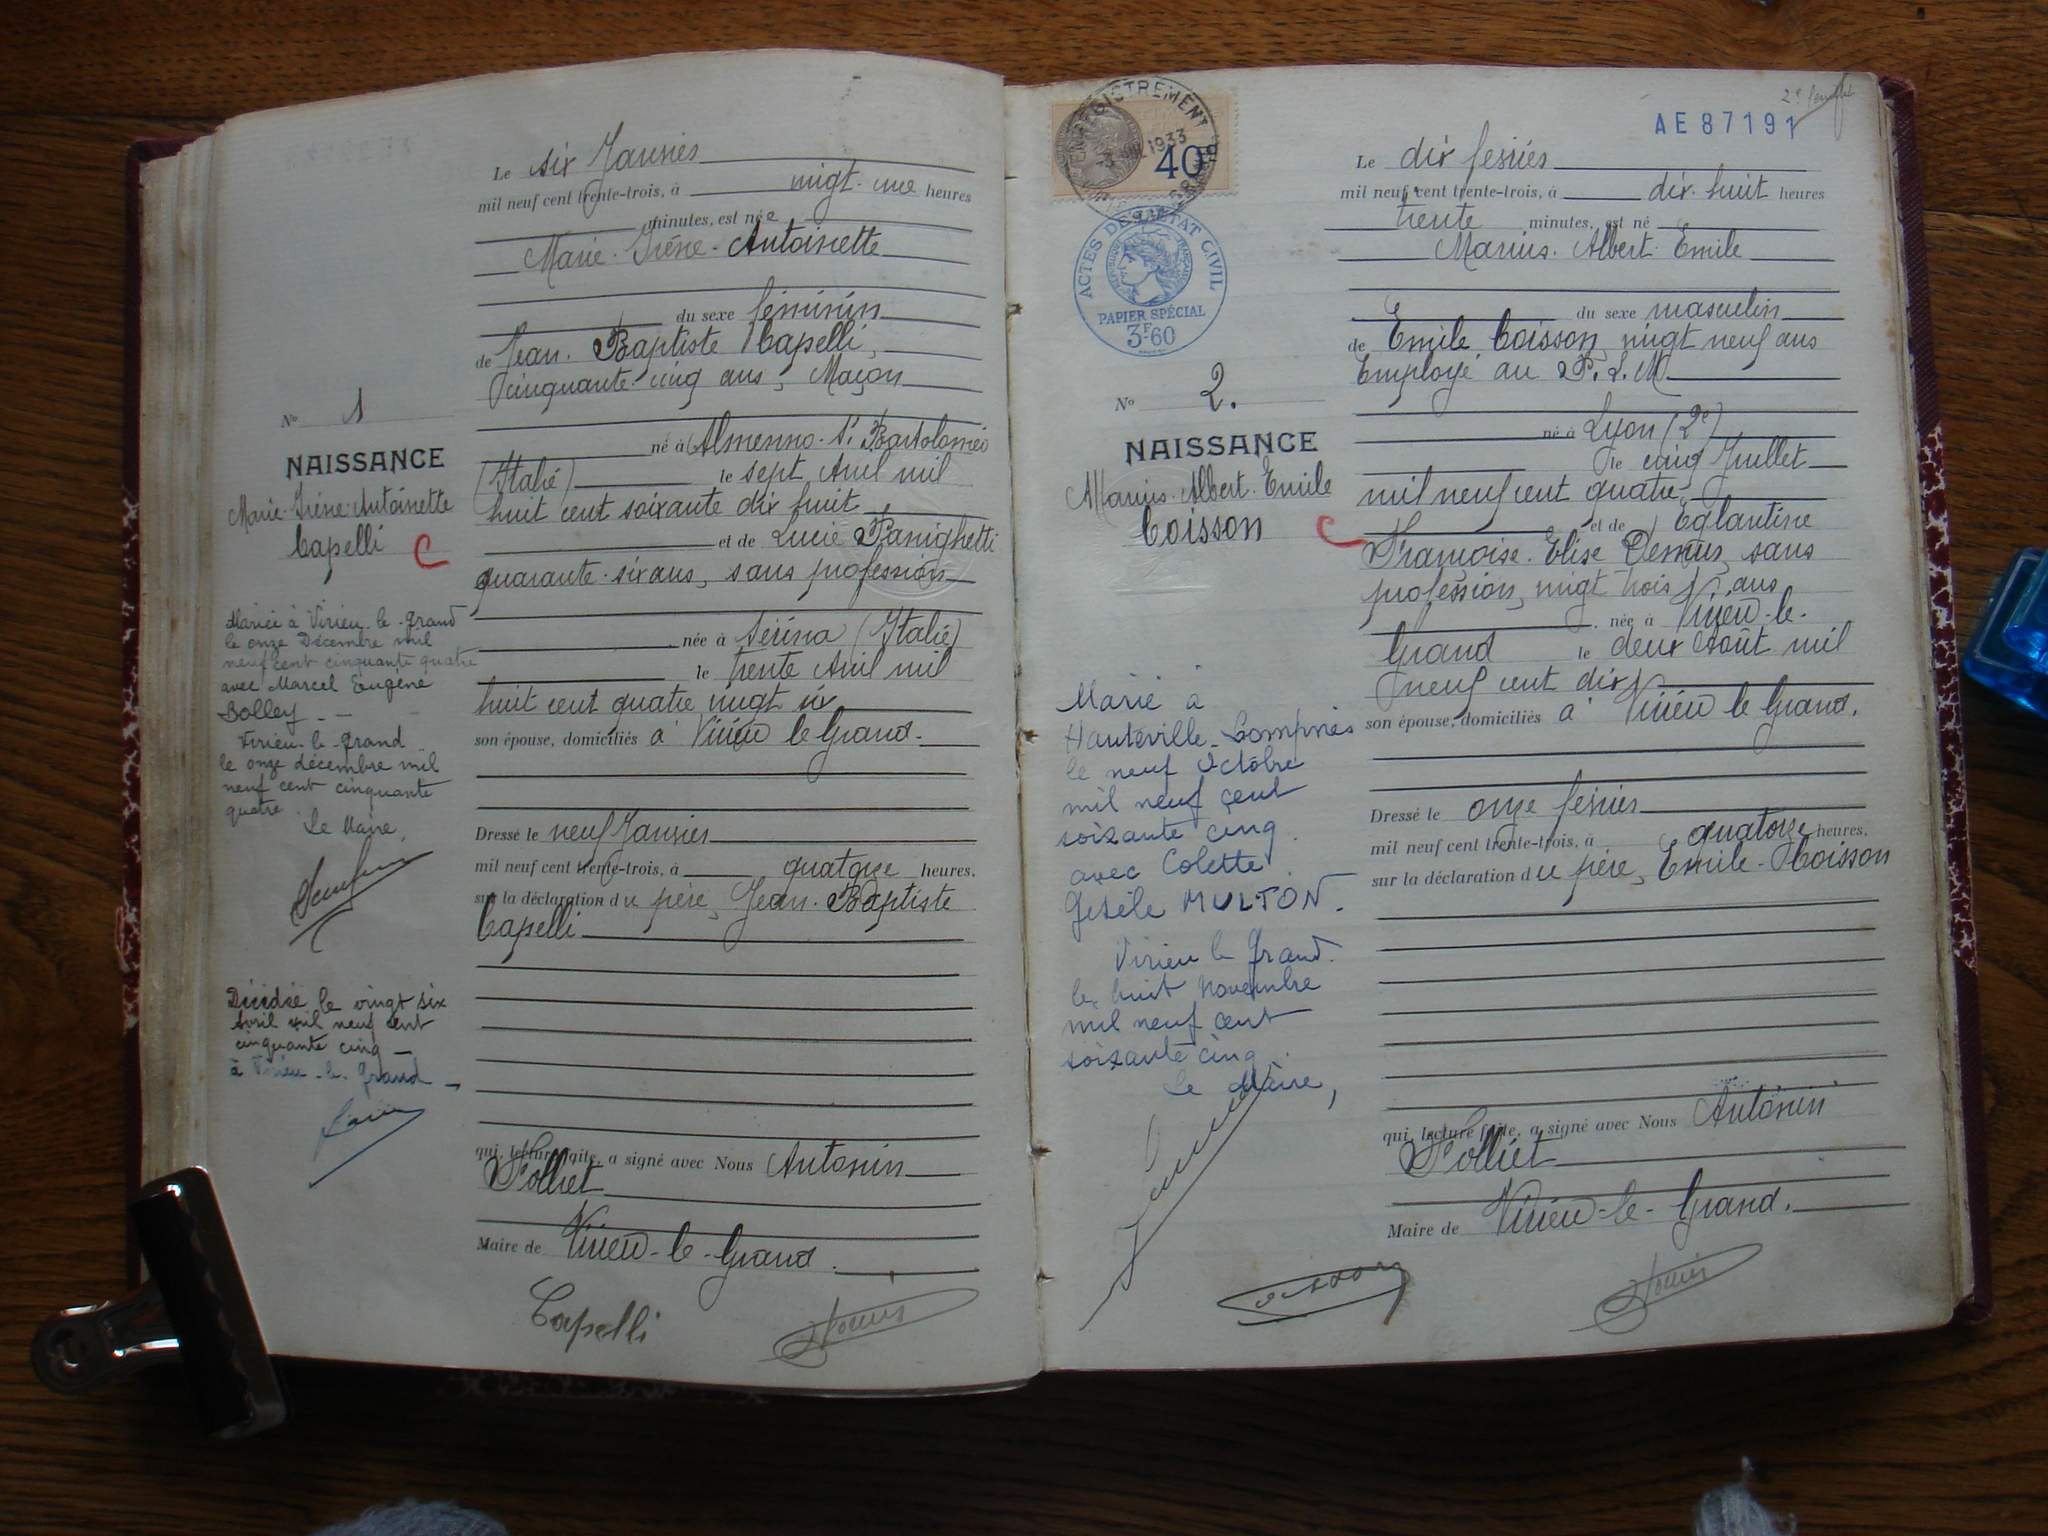 Le six Janvier
mil neuf cent trente-trois, à vingt-une heures
minutes, est née
Marie-Irène-Antoinette
du sexe féminin
de Jean-Baptiste Capelli,
cinquante-cinq ans, Maçon
né à Almenno-St Bartolomeo
(Italie) le sept Avril mil
huit cent soixante dix huit
et de Lucie Panighetti
quarante-six ans, sans profession
née à Sérina (Italie)
le trente Avril mil
huit cent quatre vingt six
son épouse, domiciliés à Virieu le Grand.
Dressé le neuf Janvier
mil neuf cent trente-trois, à quatorze heures,
sur la déclaration du père, Jean-Baptiste
Capelli
qui, lecture faite, a signé avec Nous Antonin
Folliet
Maire de Virieu-le-Grand.
Capelli
No 1
NAISSANCE
Marie-Irène-Antoinette
Capelli
C
Mariée à Virieu-le-Grand
le onze Décembre mil
neuf cent cinquante quatre
avec Marcel Eugène
Bolley
Virieu-le-Grand
le onze décembre mil
neuf cent cinquante
quatre.
Le Maire,
Décédée le vingt six
Avril mil neuf cent
cinquante cinq
à Virieu-le-Grand
2e feuillet
AE 87191
ENREGISTREMENT
1933
40
ACTES DE L'ETAT CIVIL
PAPIER SPÉCIAL
3F-60
No 2.
NAISSANCE
Marius-Albert-Emile
Coisson
C
Marié à
Hauteville-Lompnes
le neuf Octobre
mil neuf cent
soixante cinq
avec Colette
Gisèle MULTON.
Virieu le Grand.
le huit Novembre
mil neuf cent
soixante cinq.
Le Maire,
Le dix février
mil neuf cent trente-trois, à dix-huit heures
trente minutes, est né
Marius-Albert-Emile
du sexe masculin
de Emile Coisson, vingt neuf ans
Employé au P.L.M
né à Lyon (2e)
le cinq Juillet
mil neuf cent quatre,
et de Eglantine
Françoise-Elise sans
profession, vingt trois ans
née à Virieu-le-
Grand le deux Août mil
neuf cent dix
son épouse, domiciliés à Virieu le Grand.
Dressé le onze février
mil neuf cent trente-trois, à quatorze heures,
sur la déclaration du père, Emile Coisson
qui, lecture faite, a signé avec Nous Antonin
Folliet
Maire de Virieu-le-Grand.